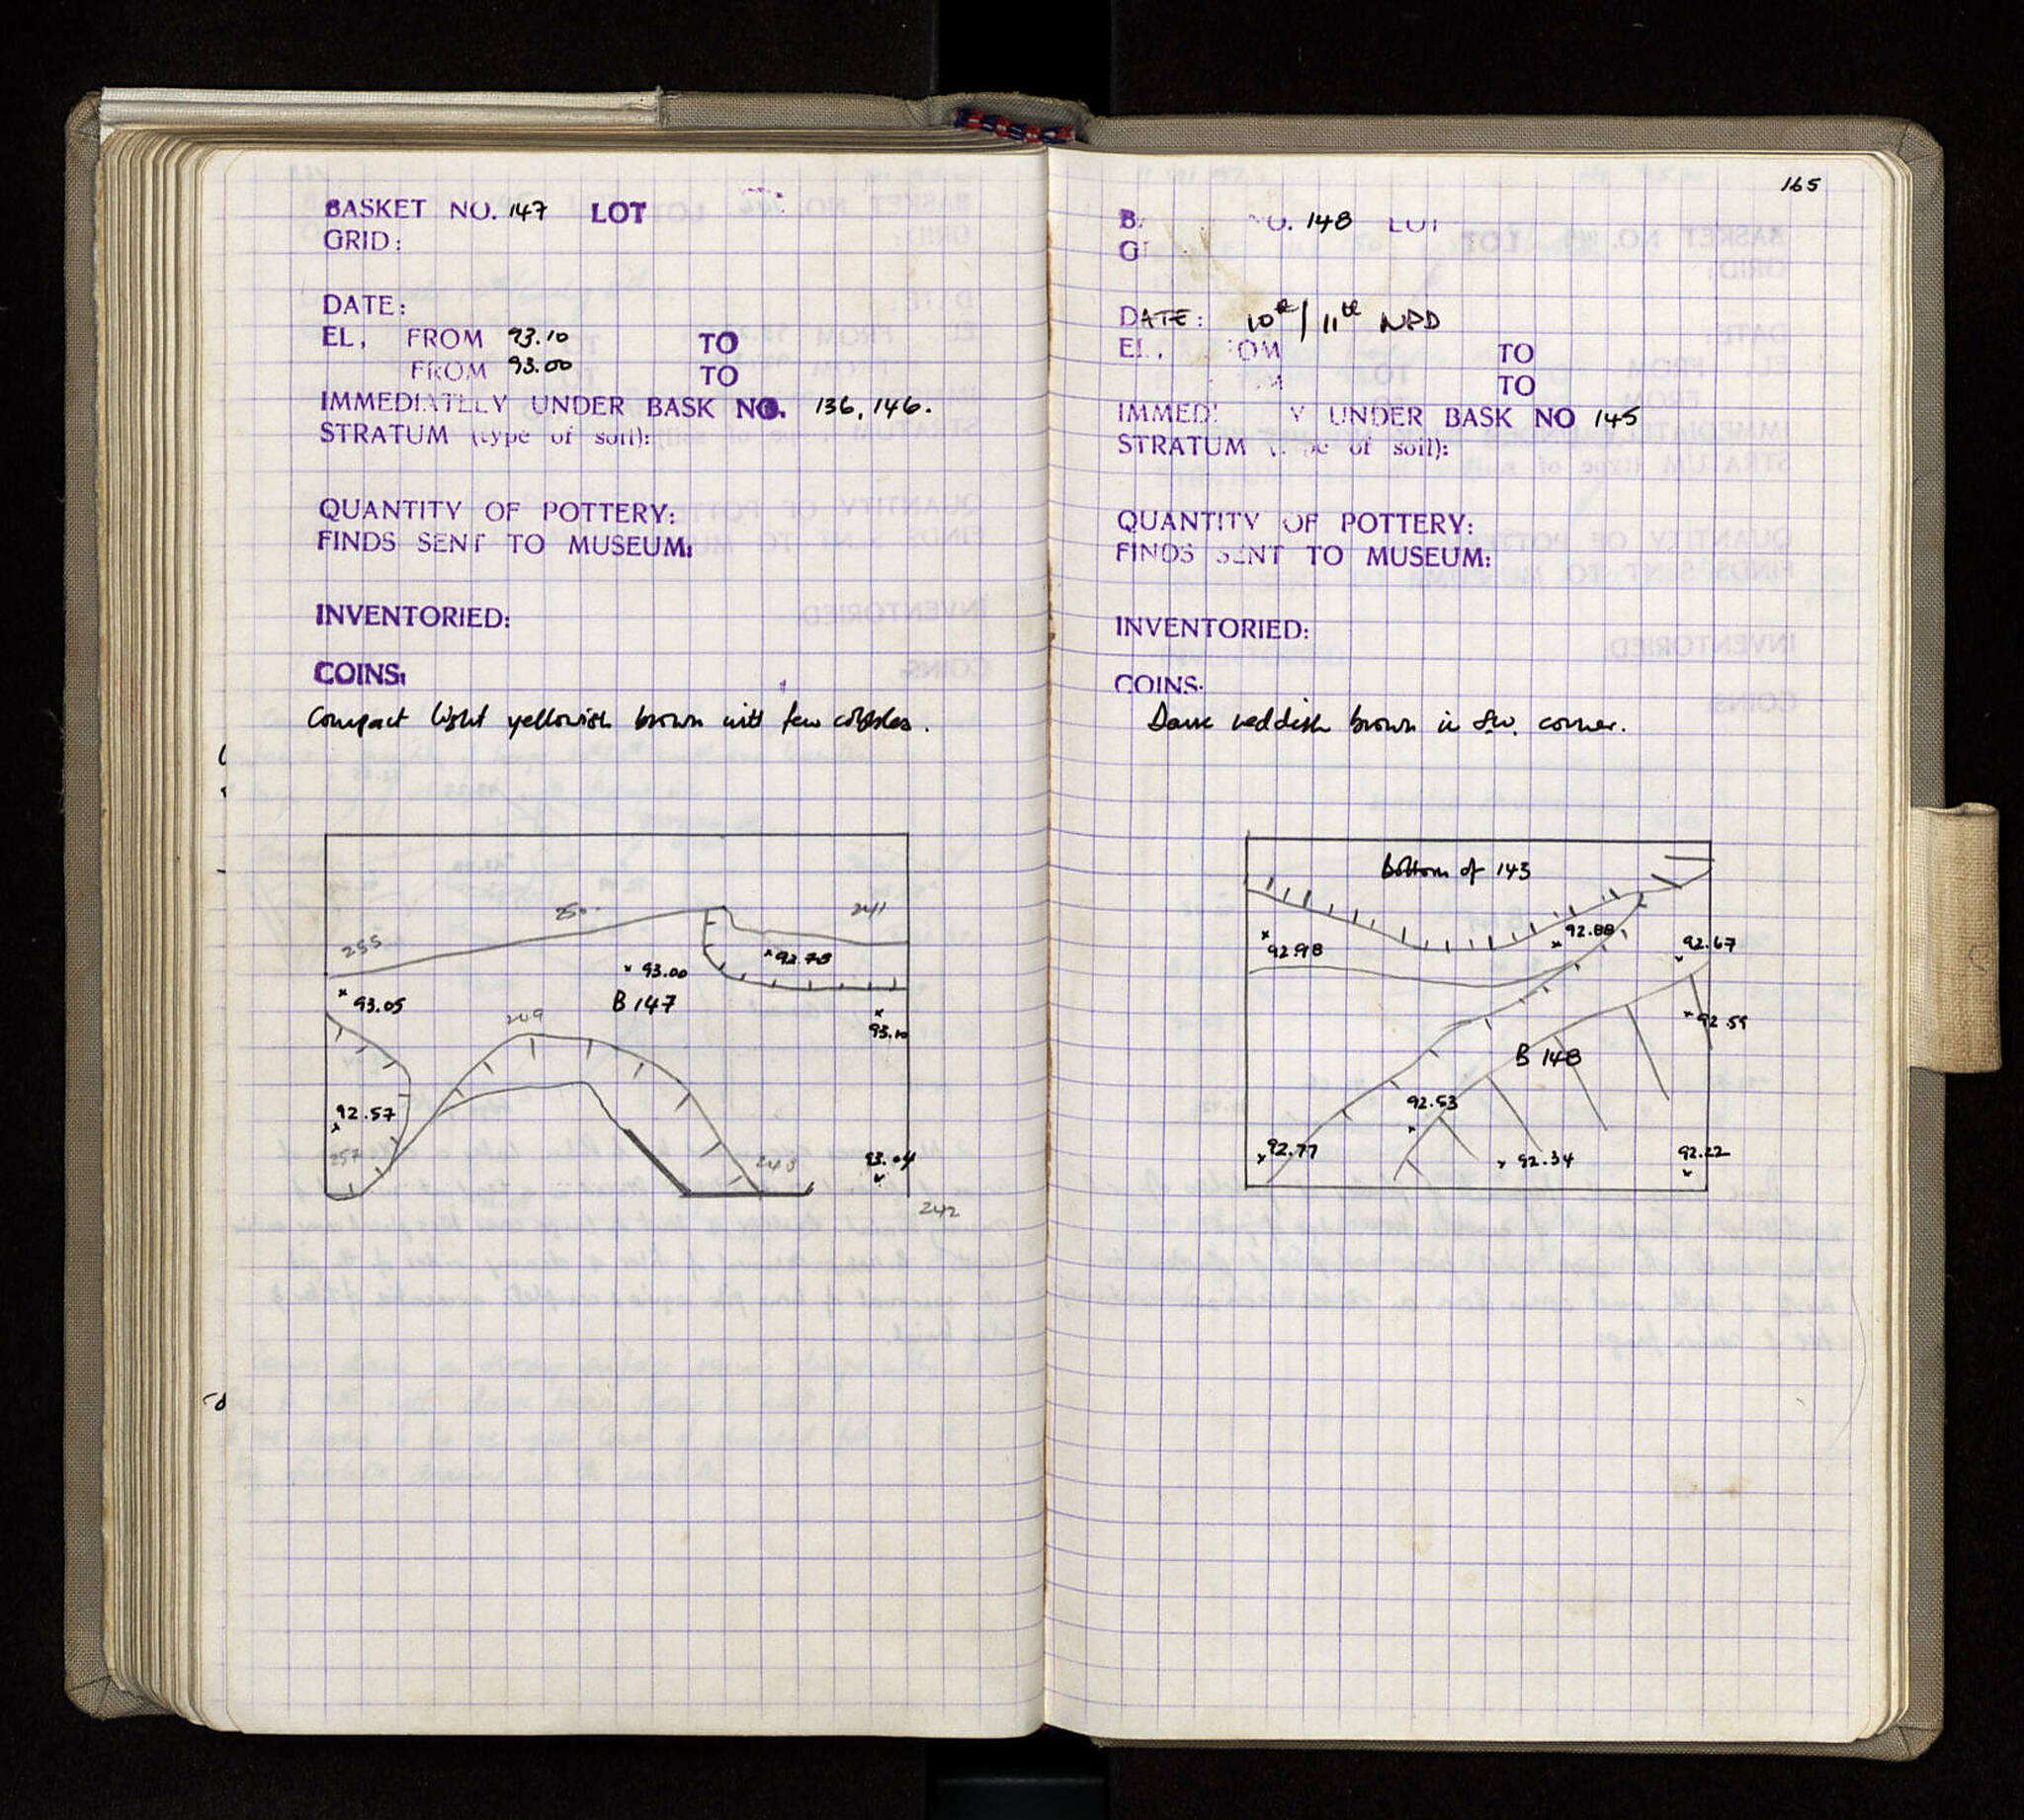 BASKET NO. 147 LOT
GRID:
DATE:
EL, FROM 93.10 TO
FROM 93.00 TO
IMMEDIATELY UNDER BASK NO. 136, 146.
STRATUM (type of soil):
QUANTITY OF POTTERY:
FINDS SENT TO MUSEUM:
INVENTORIED:
COINS:
Compact light yellowish brown with few cobbles.
250.
241
255
93.00
92.78
93.05
B 147
249
93.10
92.57
257
248
93.04
242
165
B. NO. 148 LOT
G
DATE: 10th/11th NPD
EL, OM TO
M TO
IMMED Y UNDER BASK NO 145
STRATUM (type of soil):
QUANTITY OF POTTERY:
FINDS SENT TO MUSEUM:
INVENTORIED:
COINS:
Dark reddish brown in S.W. corner.
bottom of 143
92.88
92.98
92.67
92.59
B 148
92.53
92.77
92.34
92.22